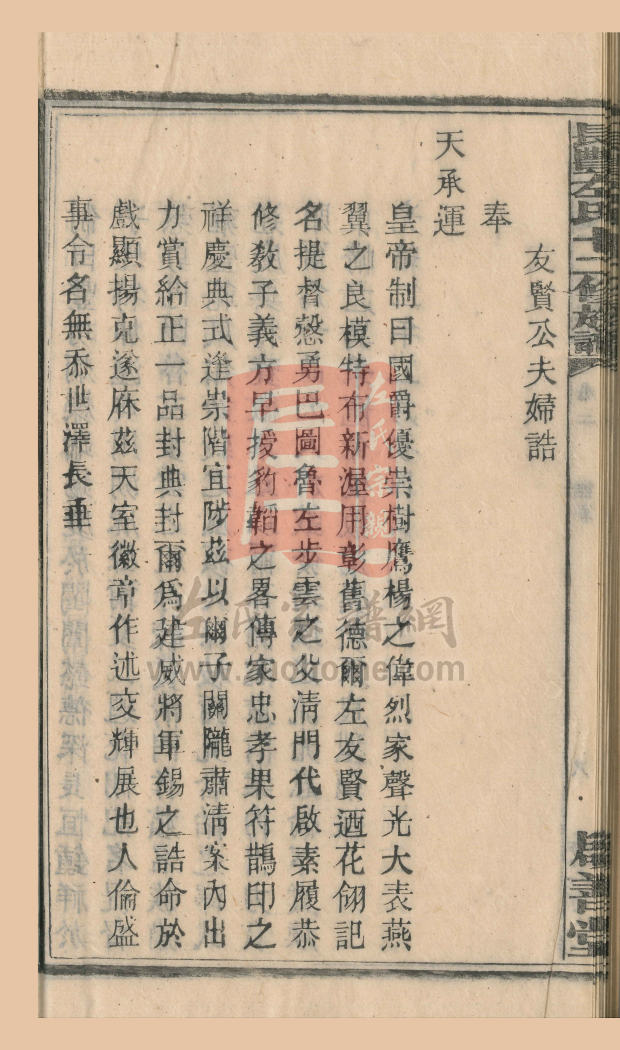 長豐左氏十二修族譜
卷二
居善堂
友賢公夫婦誥
奉
天承運
皇帝制曰國爵優崇樹鷹楊之偉烈家聲光大表燕
翼之良模特布新渥用彰舊德爾左友賢迺花翎記
名提督懲勇巴圖魯左步雲之父清門代啟素履恭
修敎子義方早授豹韜之畧傳家忠孝果符鵲印之
祥慶典式逢崇階宜陟茲以爾子關隴肅清案內出
力賞給正一品封典封爾爲建威將軍錫之誥命於
戲顯揚克遂庥茲天室徽章作述交輝展也人倫盛
事令名無忝世澤長垂
左氏宗親
左氏家譜網